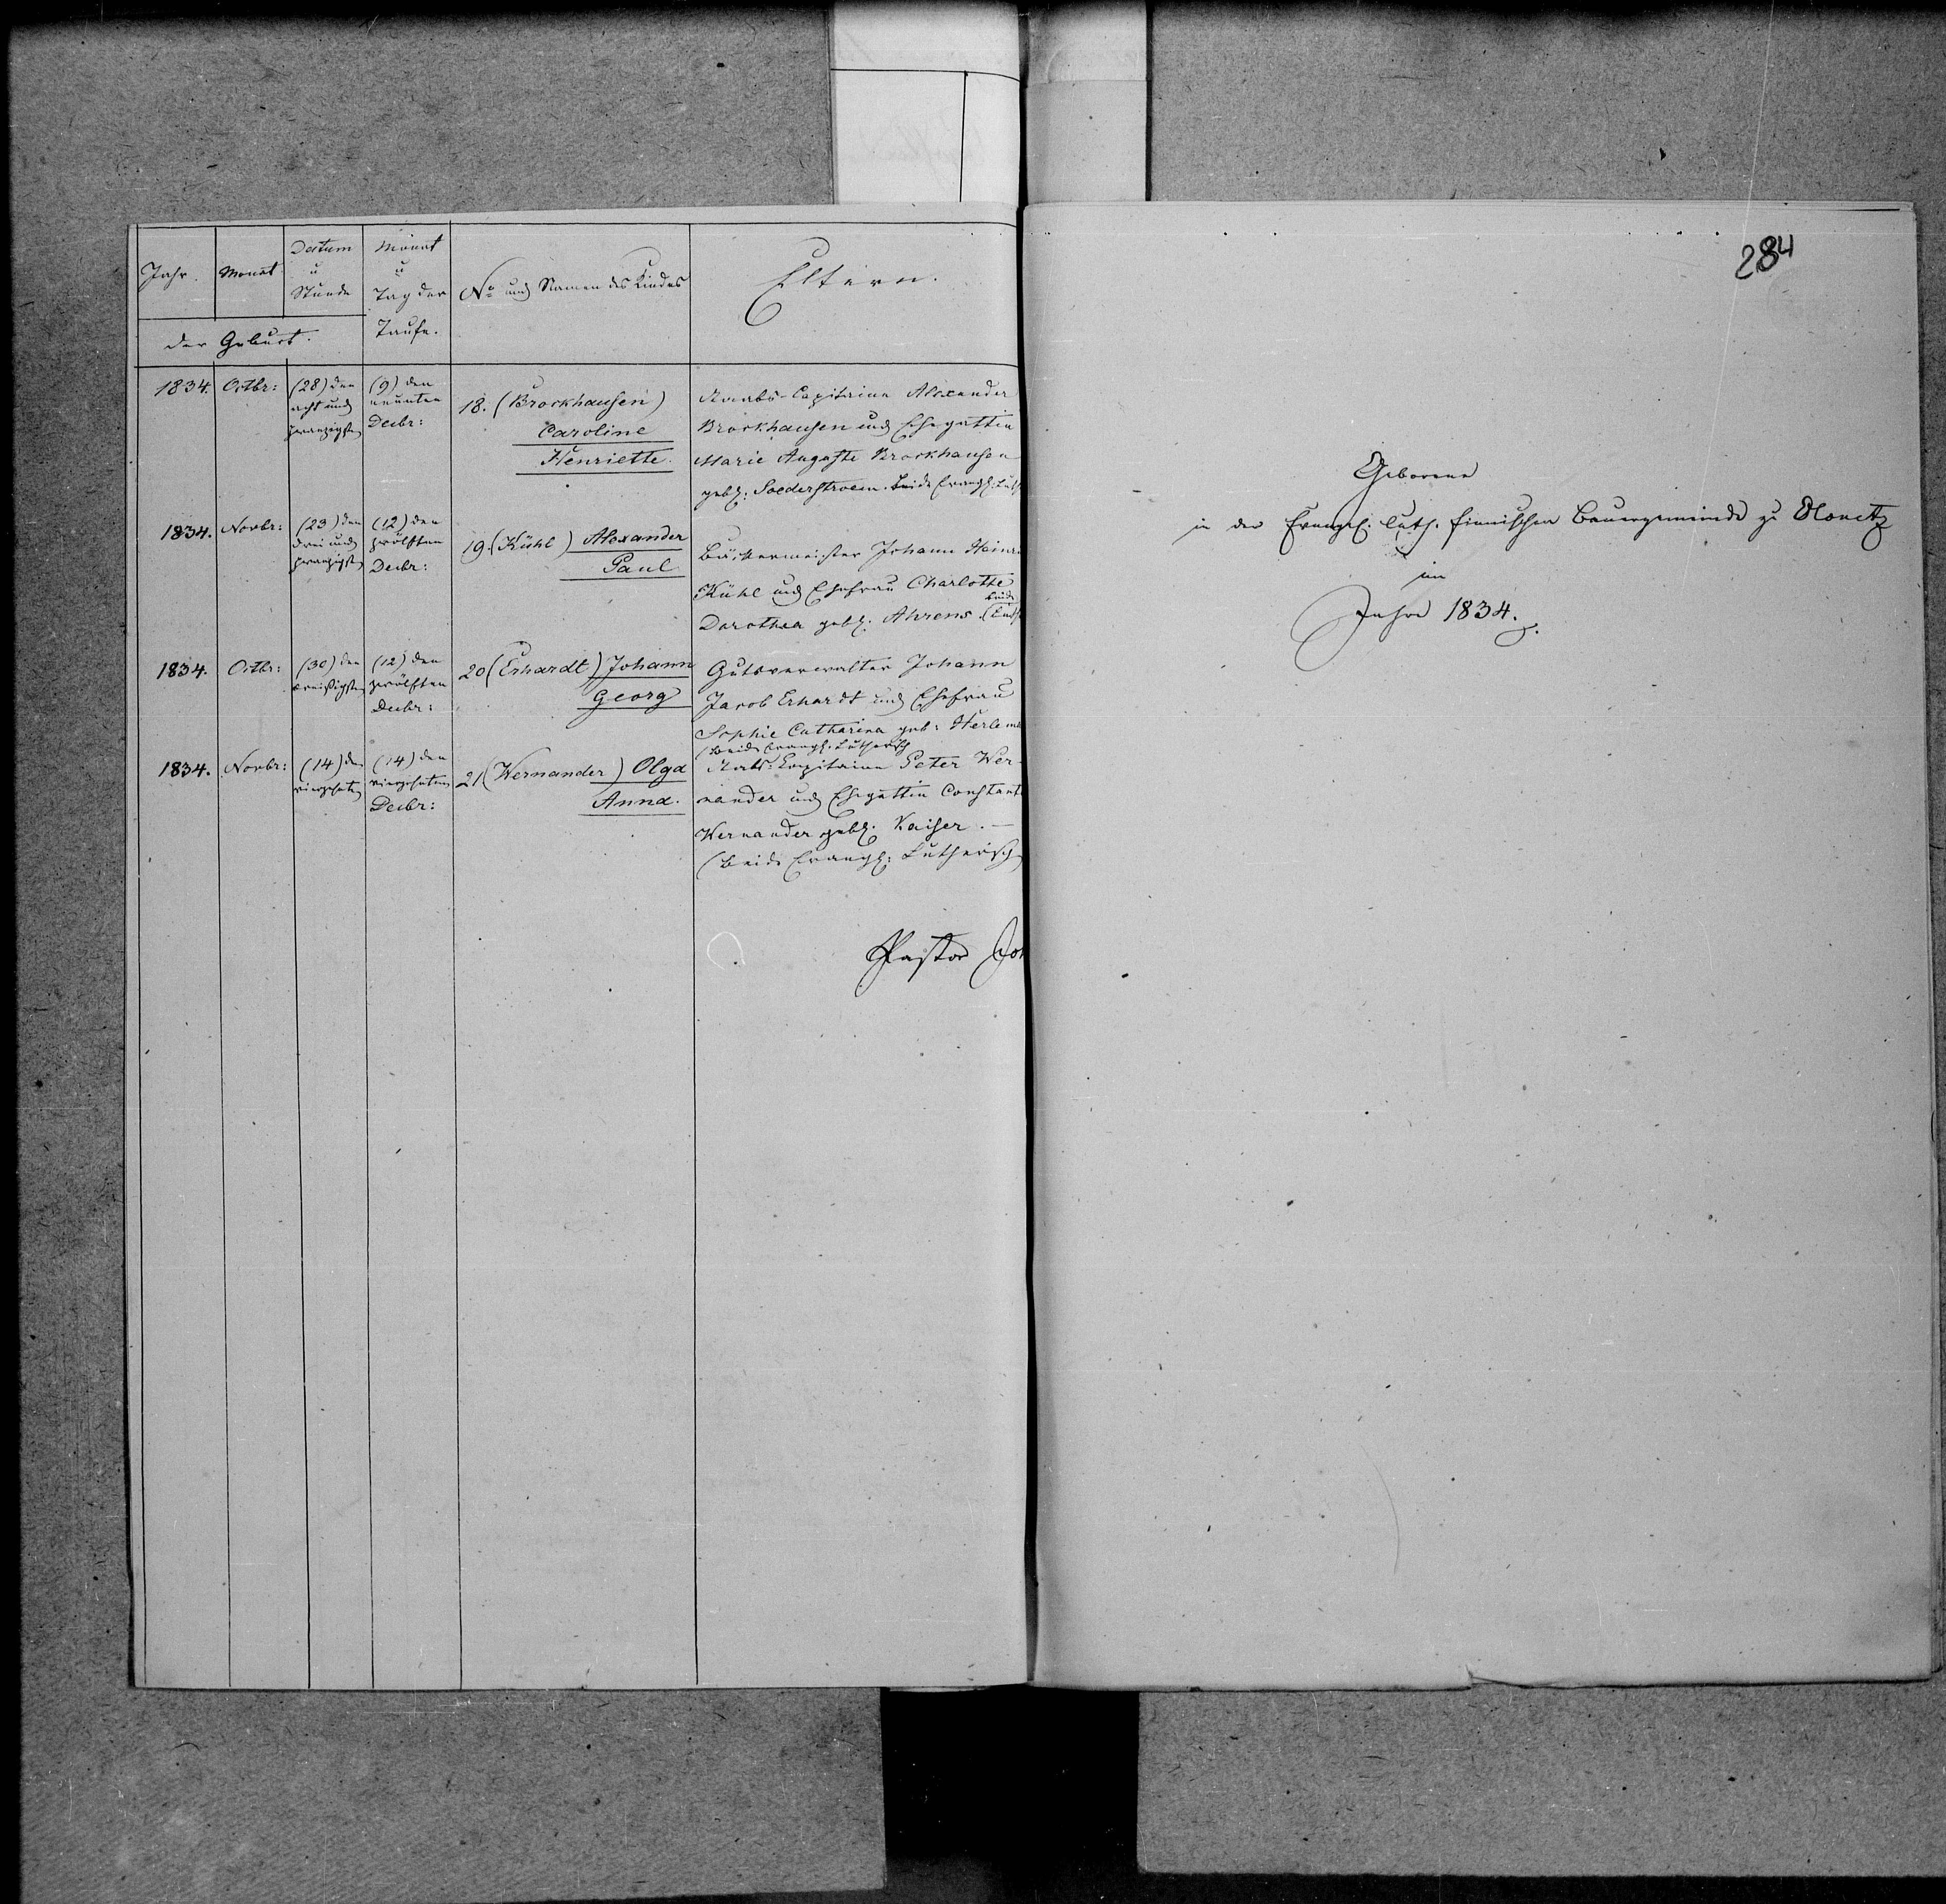 Jahr. Monat Datum u Stunde
der Geburt.
Monat u Tag der Taufe.
No und Namen des Kindes
Eltern.
1834. Octbr: (28) den acht und zwanzigsten
(9) den neunten Decbr:
18. (Brockhausen)
Caroline
Henriette.
Staabs-Capitaine Alexander
Brockhausen und Ehegattin
Marie Auguste Brockhausen
geb: Soederstroem. beide Evangl: Luth
1834. Novbr: (23) den drei und zwanzigsten
(12) den zwölften Decbr:
19. (Kühl) Alexander
Paul
Bäckermeister Johann Heinr
Kühl und Ehefrau Charlotte
Dorothea geb. Ahrens. (beide Luth
1834. Octbr: (30) den dreißigsten
(12) den zwölften Decbr:
20 (Erhardt) Johann
Georg
Gutsverwalter Johann
Jacob Erhardt und Ehefrau
Sophie Catharina geb:
(beide Evangl: Lutherisch
1834. Novbr: (14) den vierzehnten
(14) den vierzehnten Decbr:
21 (Wernander) Olga
Anna.
Stabs-Capitaine Peter Wer-
nander und Ehegattin Constant
Wernander geb. Kaiser. —
(beide Evangl: Lutherisch
Pastor
284
Geborene
in der Evangel. luth. finnischen Bauergemeinde zu Olonetz
im
Jahre 1834.